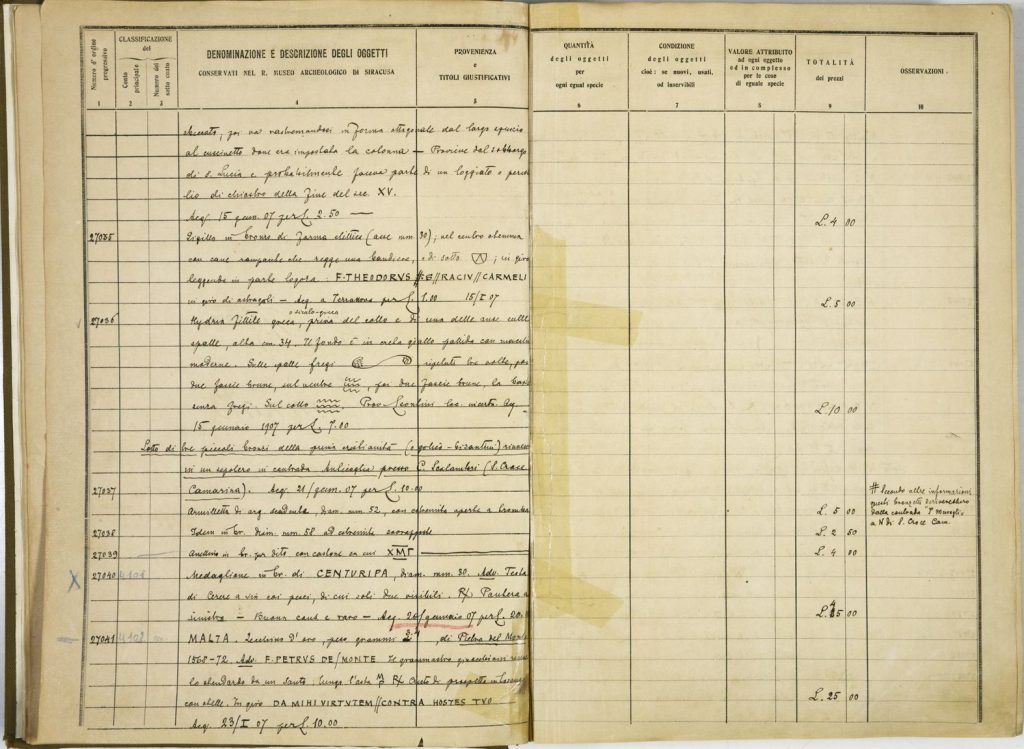 Numero d'ordine progressivo
CLASSIFICAZIONE dei
Conto principale
Numero del sotto conto
DENOMINAZIONE E DESCRIZIONE DEGLI OGGETTI
CONSERVATI NEL R. MUSEO ARCHEOLOGICO DI SIRACUSA
PROVENIENZA
e
TITOLI GIUSTIFICATIVI
1 2 3 4 5
QUANTITÀ
degli oggetti
per
ogni egual specie
CONDIZIONE
degli oggetti
cioè: se nuovi, usati,
od inservibili
VALORE ATTRIBUITO
ad ogni oggetto
od in complesso
per le cose
di eguale specie
TOTALITÀ
dei prezzi
OSSERVAZIONI
6 7 8 9 10
poi va rastremandosi in forma ottagonale dal largo
al cuscinetto dove era impostata la colonna — Proviene dal sobborgo
di S. Lucia e probabilmente faceva parte di un loggiato o
di chiostro della fine del sec. XV.
Acq. 15 genn. 07 per £. 2.50 —
L. 4 00
27035 Sigillo in bronzo di forma elittica (asse mm. 30); nel centro
con cane rampante che regge una e di sotto ; in giro
leggenda in parte logora: F·THEODORVS RACIV//CARMELI
in giro di astragali — Acq. a Terranova per £. 1.00 15/I 07
L. 5 00
27036 Hydria fittile greca, priva del collo e di una delle anse sulle
o siculo-greca
spalle, alta cm. 34. Il fondo è in creta giallo pallida con
moderne. Sulle spalle fregi ripetuti tre volte, poi
due fascie brune, sul ventre , poi due fascie brune, la base
senza fregi. Sul collo . Prov. Leontini loc. incerta. Acq.
15 gennaio 1907 per £. 7.00
L. 10 00
Lotto di tre piccoli bronzi della prima cristianità (o gotico-bizantini)
in un sepolcro in contrada presso C. Scalambri (S. Croce
Camarina). Acq. 21/genn. 07 per £. 10.00
27037 Armilletta di arg. scadente, diam. mm. 52, con estremità aperte a
L. 5 00
# Secondo altre informazioni
questi bronzetti deriverebbero
dalla contrada
a N di S. Croce Cam.
27038 Idem in br. diam. mm. 58 ad estremità sovrapposte
L. 2 50
27039 Anellino in br. per dito con castone in cui XMΓ
L. 4 00
27040 4101 Medaglione in br. di CENTURIPA, diam. mm. 30. Adv. Testa
di Cerere a sin coi pesci, di cui soli due visibili. R) Pantera a
sinistra — Buona cons. e raro — Acq. 20/gennaio 07 per £. 20.00
27041 4102 MALTA. Zecchino d'oro, peso grammi 3.4, di Pietro del Monte
1568-72. Adv. F. PETRVS DE/MONTE Il granmastro
lo stendardo da un santo; lungo l'asta R) Cristo di prospetto in losanga
con stelle. In giro DA MIHI VIRTVTEM//CONTRA HOSTES TVO
L. 25 00
Acq. 23/I 07 per £. 10.00